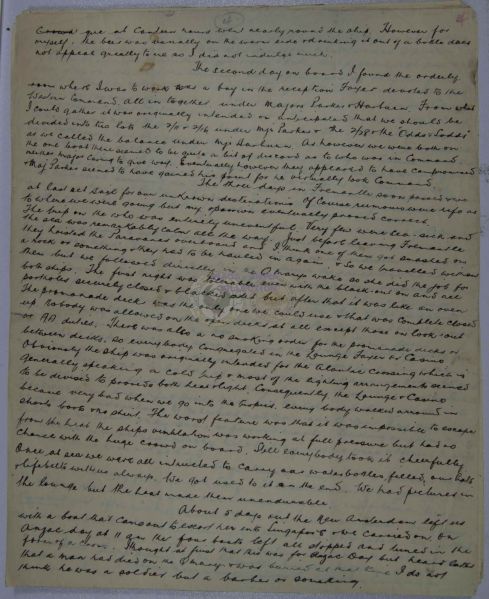 queue at Canteen hours went nearly round the ship. However for
myself, the beer was usually on the warm side & drinking it out of a bottle does
not appeal greatly to me so I did not indulge much.
The second day on board I found the orderly
room where I was to work was a bay in the reception foyer devoted to the
Command all in together, under Majors Parker & Harburn. From what
I could gather it was originally intended or anticipated that we should be
divided into two lots the 2/10 & 2/26 under Mjr Parker & the 2/29 & the "Odds & Sodds"
as we called the balance under Mjr Harburn. As however we were both on
the one boat there seemed to be quite a bit of discord as to who was in Command
neither Major caring to give way. Eventually however they appeared to have compromised
& Maj Parker seemed to have gained his point for he virtually took Command.
The three days in Fremantle soon passed & we
at last set sail for our unknown destination. Of course rumours were rife as
to where we were going but my opinion eventually proved correct.
The trip on the whole was entirely uneventful. Very few were sea-sick and
the sea was remarkably calm all the way. Just before leaving Fremantle
they hoisted the Paravanes overboard and I think one of them got snagged on
a rock or something & they had to be hauled in again & so we travelled without
them but we followed directly in the Q Marys wake so she did the job for
both ships. The first night was terrible what with the black-out on and all
portholes securely closed & blackened but after that it was like an oven.
The promenade deck was the only one we could use & that was complete closed
up. Nobody was allowed on the open decks at all except those on look-out
or AA duties. There was also a no smoking order for the promenade decks or
between decks, so everybody congregated in the Lounge Foyer or Casino
Obviously the ship was originally intended for the Atlantic crossing which is
generally speaking a cold trip & most of the lighting arrangements seemed
to be devised to provide both heat & light. Consequently the Lounge & Casino
became very bad when we go into the tropics. Every body walked around in
shorts boots & no shirt. The worst feature was that it was impossible to escape
from the heat. The ships ventilation was working at full pressure but had no
chance with the huge crowd on board. Still everybody took it cheerfully
Once at sea we were all instructed to carry our water bottles filled, our hats
& lifebelts with us always. We got used to it in the end. We had pictures in
the lounge but the heat made them unendurable.
About 5 days out the New Amsterdam left us
with a boat that came out to escort her into Singapore & we carried on. On
Anzac day at 11 am the four boats left all stopped and lined in the
form of a cross. I thought at first that this was for Anzac Day but heard later
that a man had died on the Q Mary & was buried at that time. I do not
think he was a soldier but a barber or something.